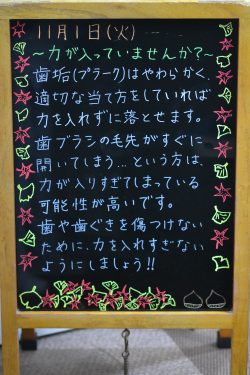 11月1日(火)
~力が入っていませんか?~
歯垢(プラーク)はやわらかく、
適切な当て方をしていれば
力を入れずに落とせます。
歯ブラシの毛先がすぐに
開いてしまう…という方は、
力が入りすぎてしまっている
可能性が高いです。
歯や歯ぐきを傷つけない
ために、力を入れすぎない
ようにしましょう!!